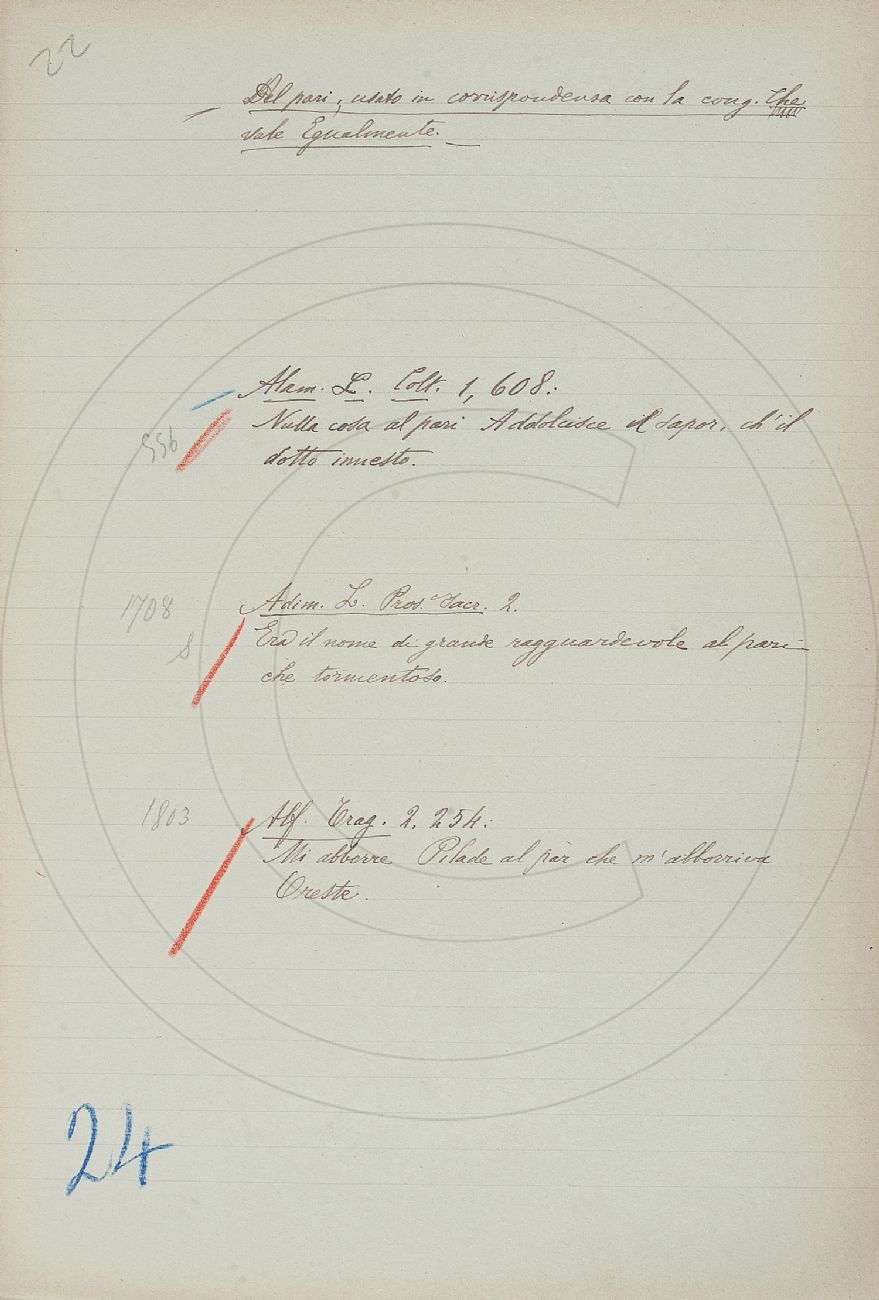 22
Del pari, usato in corrispondenza con la cong. Che
vale Egualmente. —
Alam. L. Colt. 1, 608:
Nulla cosa al pari Addolcisce il sapor, ch'il
556
dotto innesto.
1708
Adim. L. Pros. Sacr. 2.
S
Era il nome di grande ragguardevole al pari
che tormentoso.
1803
Alf. Trag. 2. 254:
Mi abborre Pilade al par che m'abborriva
Oreste.
24